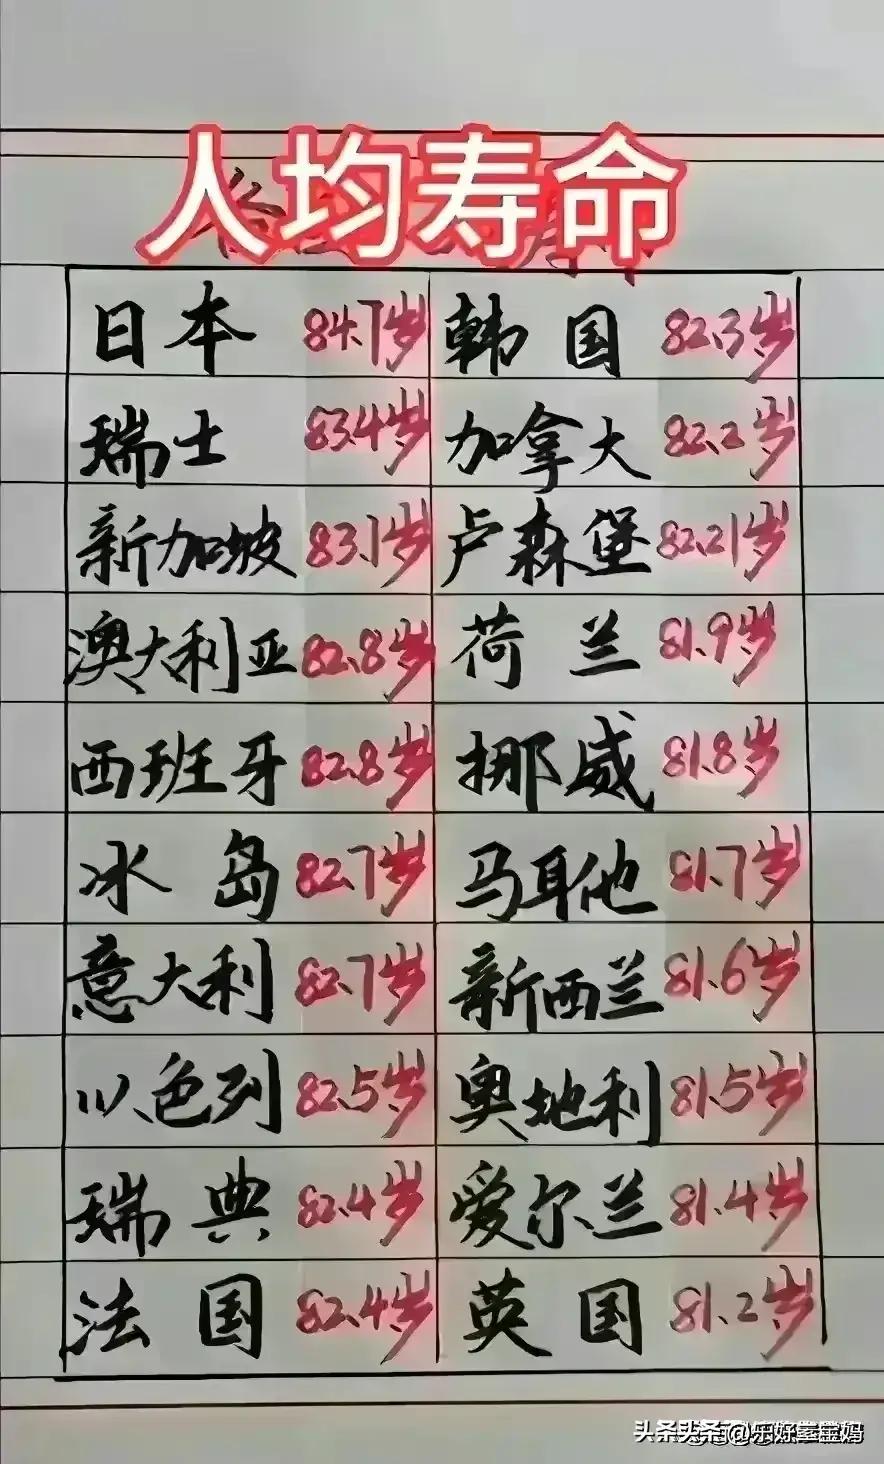 人均寿命
日本 84.7岁 韩国 82.3岁
瑞士 83.4岁 加拿大 82.2岁
新加坡 83.1岁 卢森堡 82.21岁
澳大利亚 82.8岁 荷兰 81.9岁
西班牙 82.8岁 挪威 81.8岁
冰岛 82.7岁 马耳他 81.7岁
意大利 82.7岁 新西兰 81.6岁
以色列 82.5岁 奥地利 81.5岁
瑞典 82.4岁 爱尔兰 81.4岁
法国 82.4岁 英国 81.2岁
头条